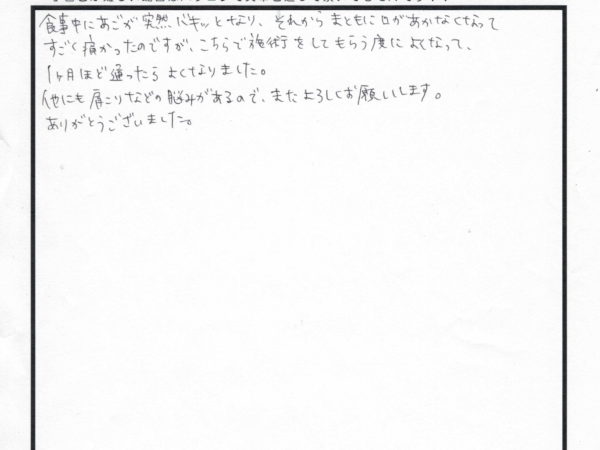 食事中にあごが突然バキッとなり、それからまともに口があかなくなって
すごく痛かったのですが、こちらで施術をしてもらう度によくなって、
1ヶ月ほど通ったらよくなりました。
他にも肩こりなどの悩みがあるので、またよろしくお願いします。
ありがとうございました。